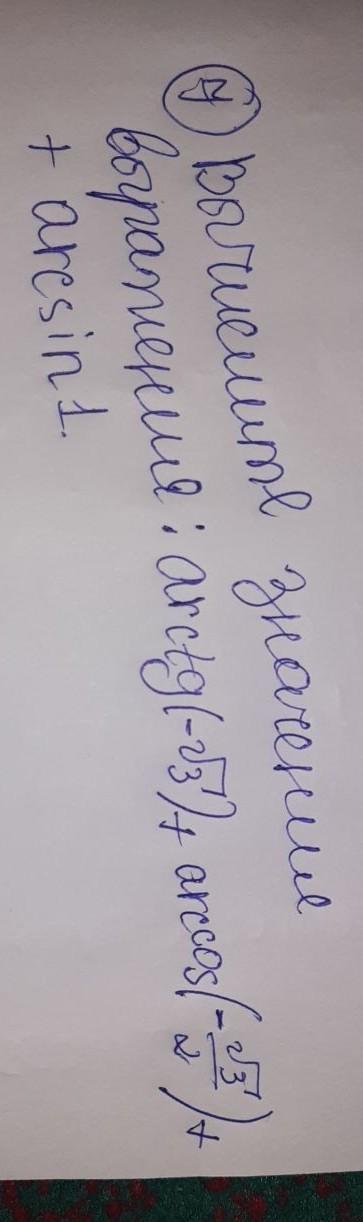 7 Вычислить значение
выражения: arctg(-√3)+ arccos(-√3/2)+
+ arcsin 1.